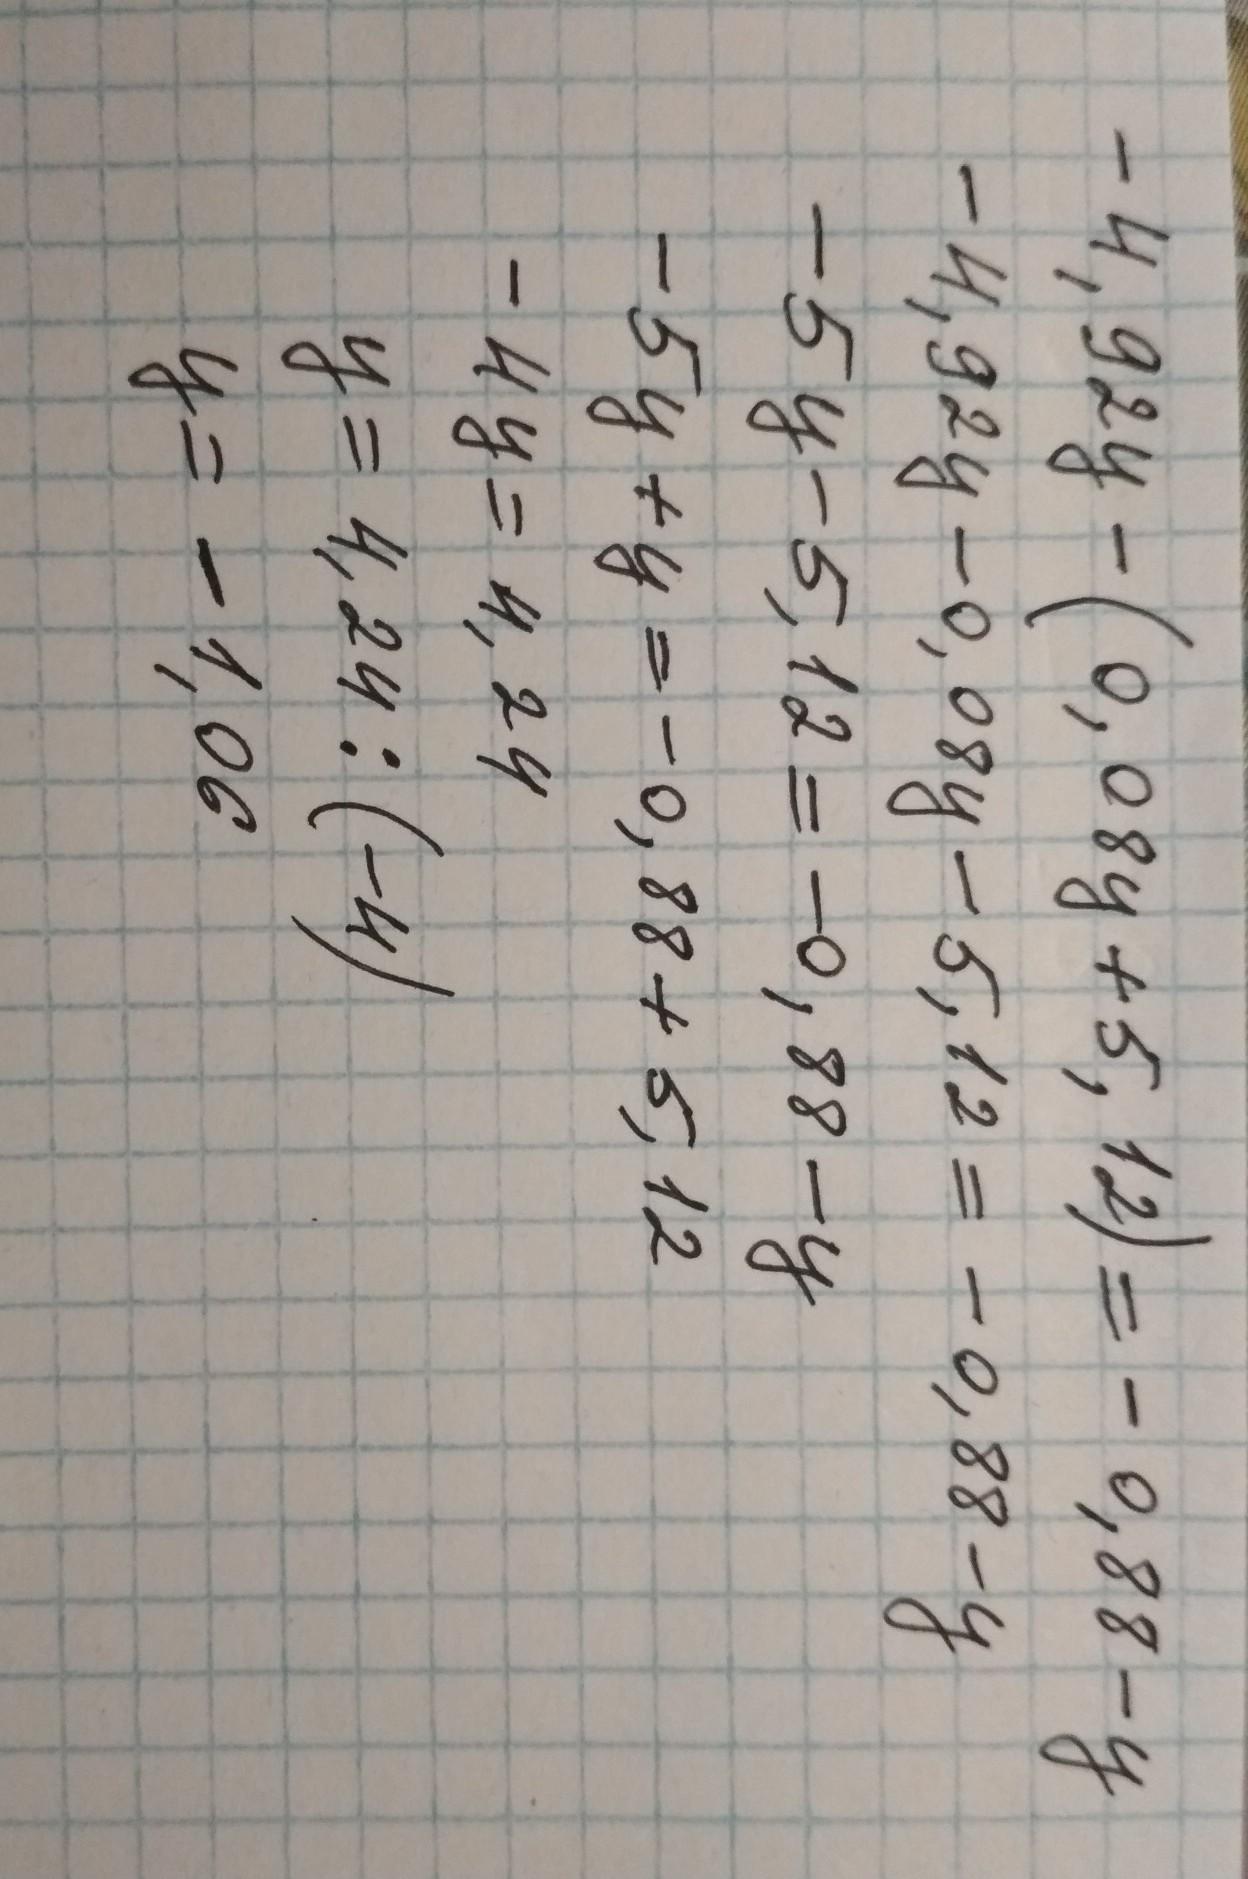 -4,92y-(0,08y+5,12)=-0,88-y
-4,92y-0,08y-5,12=-0,88-y
-5y-5,12=-0,88-y
-5y+y=-0,88+5,12
-4y=4,24
y=4,24:(-4)
y=-1,06